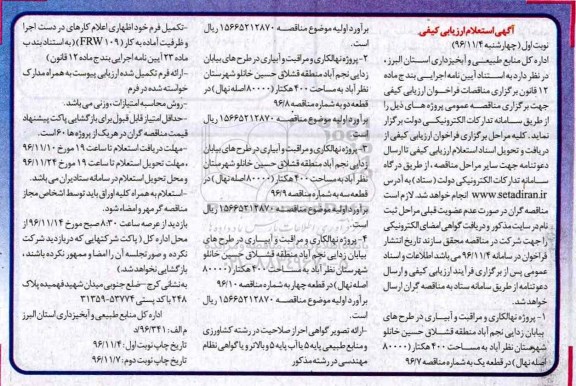 آگهی استعلام ارزیابی کیفی
نوبت اول (چهارشنبه ۹۶/۱۱/۴)
اداره کل منابع طبیعی و آبخیزداری استان البرز،
در نظر دارد به استناد آیین نامه اجرایی بند ج ماده
۱۲ قانون برگزاری مناقصات فراخوان ارزیابی کیفی
جهت برگزاری مناقصه عمومی پروژه های ذیل را
از طریق سامانه تدارکات الکترونیکی دولت برگزار
نماید. کلیه مراحل برگزاری فراخوان ارزیابی کیفی از
دریافت و تحویل اسناد استعلام ارزیابی کیفی تا ارسال
دعوتنامه جهت سایر مراحل مناقصه، از طریق درگاه
سامانه تدارکات الکترونیکی دولت (ستاد) به آدرس
www.setadiran.ir انجام خواهد شد. لازم است
مناقصه گران در صورت عدم عضویت قبلی مراحل ثبت
نام در سایت مذکور و دریافت گواهی امضای الکترونیکی
را جهت شرکت در مناقصه محقق سازند تاریخ انتشار
فراخوان در سامانه ۹۶/۱۱/۴ می باشد اطلاعات و اسناد
عمومی پس از برگزاری فرآیند ارزیابی کیفی و ارسال
دعوتنامه از طریق سامانه ستاد به مناقصه گران ارسال
خواهد شد.
۱- پروژه نهالکاری و مراقبت و آبیاری در طرح های
بیابان زدایی نجم آباد منطقه قشلاق حسین خانلو
شهرستان نظر آباد به مساحت ۴۰۰ هکتار (۸۰۰۰۰
اصله نهال) در قطعه یک به شماره مناقصه ۹۶/۷
برآورد اولیه موضوع مناقصه ۱۵۶۶۵۲۱۲۸۷۰ ریال
است.
۲- پروژه نهالکاری و مراقبت و آبیاری در طرح های بیابان
زدایی نجم آباد منطقه قشلاق حسین خانلو شهرستان
نظر آباد به مساحت ۴۰۰ هکتار (۸۰۰۰۰ اصله نهال) در
قطعه دو به شماره مناقصه ۹۶/۸
برآورد اولیه موضوع مناقصه ۱۵۶۶۵۲۱۲۸۷۰ ریال
است.
۳- پروژه نهالکاری و مراقبت و آبیاری در طرح های بیابان
زدایی نجم آباد منطقه قشلاق حسین خانلو شهرستان
نظر آباد به مساحت ۴۰۰ هکتار (۸۰۰۰۰ اصله نهال) در
قطعه سه به شماره مناقصه ۹۶/۹
برآورد اولیه موضوع مناقصه ۱۵۶۶۵۲۱۲۸۷۰ ریال
است.
۴- پروژه نهالکاری و مراقبت و آبیاری در طرح های
بیابان زدایی نجم آباد منطقه قشلاق حسین خانلو
شهرستان نظر آباد به مساحت ۴۰۰ هکتار (۸۰۰۰۰
اصله نهال) در قطعه چهار به شماره مناقصه ۹۶/۱۰
برآورد اولیه موضوع مناقصه ۱۵۶۶۵۲۱۲۸۷۰ ریال
است.
-ارائه تصویر گواهی احراز صلاحیت در رشته کشاورزی
و منابع طبیعی پایه ۵ یا آب پایه ۵ و بالاتر و یا گواهی نظام
مهندسی در رشته مذکور
-تکمیل فرم خود اظهاری اعلام کارهای در دست اجرا
و ظرفیت آماده به کار (FRW ۱۰۹) (به استناد بند ب
ماده ۲۳ آیین نامه اجرایی بند ج ماده ۱۲ قانون)
-ارائه فرم تکمیل شده ارزیابی پیوست به همراه مدارک
خواسته شده در فرم
-روش محاسبه امتیازات، وزنی می باشد.
-حداقل امتیاز قابل قبول برای بازگشایی پاکت پیشنهاد
قیمت مناقصه گران در هر یک از پروژه ها ۶۰ است.
-مهلت دریافت استعلام تا ساعت ۱۹ مورخ ۹۶/۱۱/۱۰
، مهلت تحویل استعلام تا ساعت ۱۹ مورخ ۹۶/۱۱/۲۴
و محل تحویل استعلام در سامانه ستاد ایران می باشد.
-استعلام به همراه کلیه اوراق باید توسط اشخاص مجاز
مناقصه گر مهر و امضاء شود.
بازدید از عرصه ساعت ۸:۳۰ صبح مورخ ۹۶/۱۱/۱۴ از
محل اداره کل ( پاکت شرکتهایی که در بازدید شرکت
نکرده و صورتجلسه آن را امضا و ممهور نکرده باشند،
بازگشایی نخواهد شد.)
به نشانی کرج – ضلع جنوبی میدان شهید فهمیده پلاک
۲۴۸ با کد پستی ۵۳۷۷۴-۳۱۳۵۹
اداره کل منابع طبیعی و آبخیزداری استان البرز
م الف: ۹۶/۳۴۱/د
تاریخ چاپ نوبت اول: ۹۶/۱۱/۴
تاریخ چاپ نوبت دوم: ۹۶/۱۱/۷